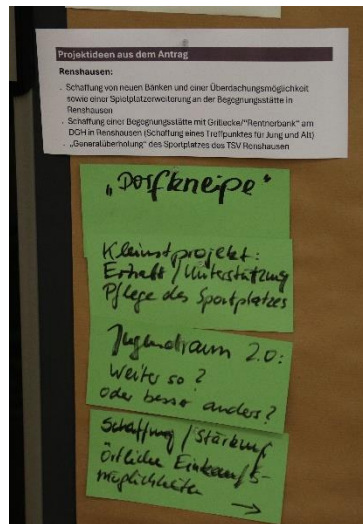 Projektideen aus dem Antrag
Renshausen:
. Schaffung von neuen Bänken und einer Überdachungsmöglichkeit
sowie einer Spielplatzerweiterung an der Begegnungsstätte in
Renshausen
. Schaffung einer Begegnungsstätte mit Grillecke/"Rentnerbank" am
DGH in Renshausen (Schaffung eines Treffpunktes für Jung und Alt)
. „Generalüberholung" des Sportplatzes des TSV Renshausen
„Dorfkneipe"
Kleinstprojekt:
Erhalt / Unterstützung
Pflege des Sportplatzes
Jugendraum 2.0:
weiter so?
oder besser anders?
Schaffung / Stärkung
örtliche Einkaufs-
möglichkeiten
→